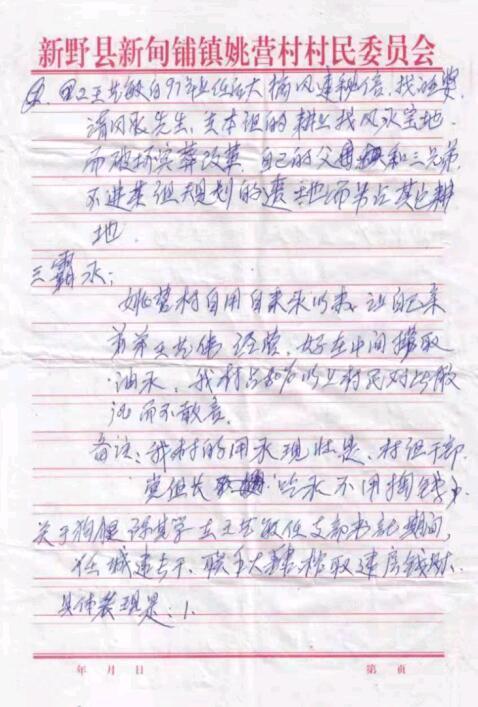 新野县新甸铺镇姚营村村民委员会
自97年上任后大搞风连秘信、找
请风水先生、去本组的耕地找风水宝地
而破坏实葬改革、自己的父母和三兄弟
不进某组规划的地而另占其它耕
地.
三霸水：
姚营村自用自来水以来、让自己亲
弟弟王 伟经营、好在中间榨取
油水、我村占80%以上村民对此敢
而不敢言.
备注：我村的用水现状是、村组干部
党组长 吃水不用掏钱
关于狗腿 在王 敏任支部书记期间,
任城建专干、联手大肆榨取建房钱财.
具体表现是：1.
年 月 日
第 页